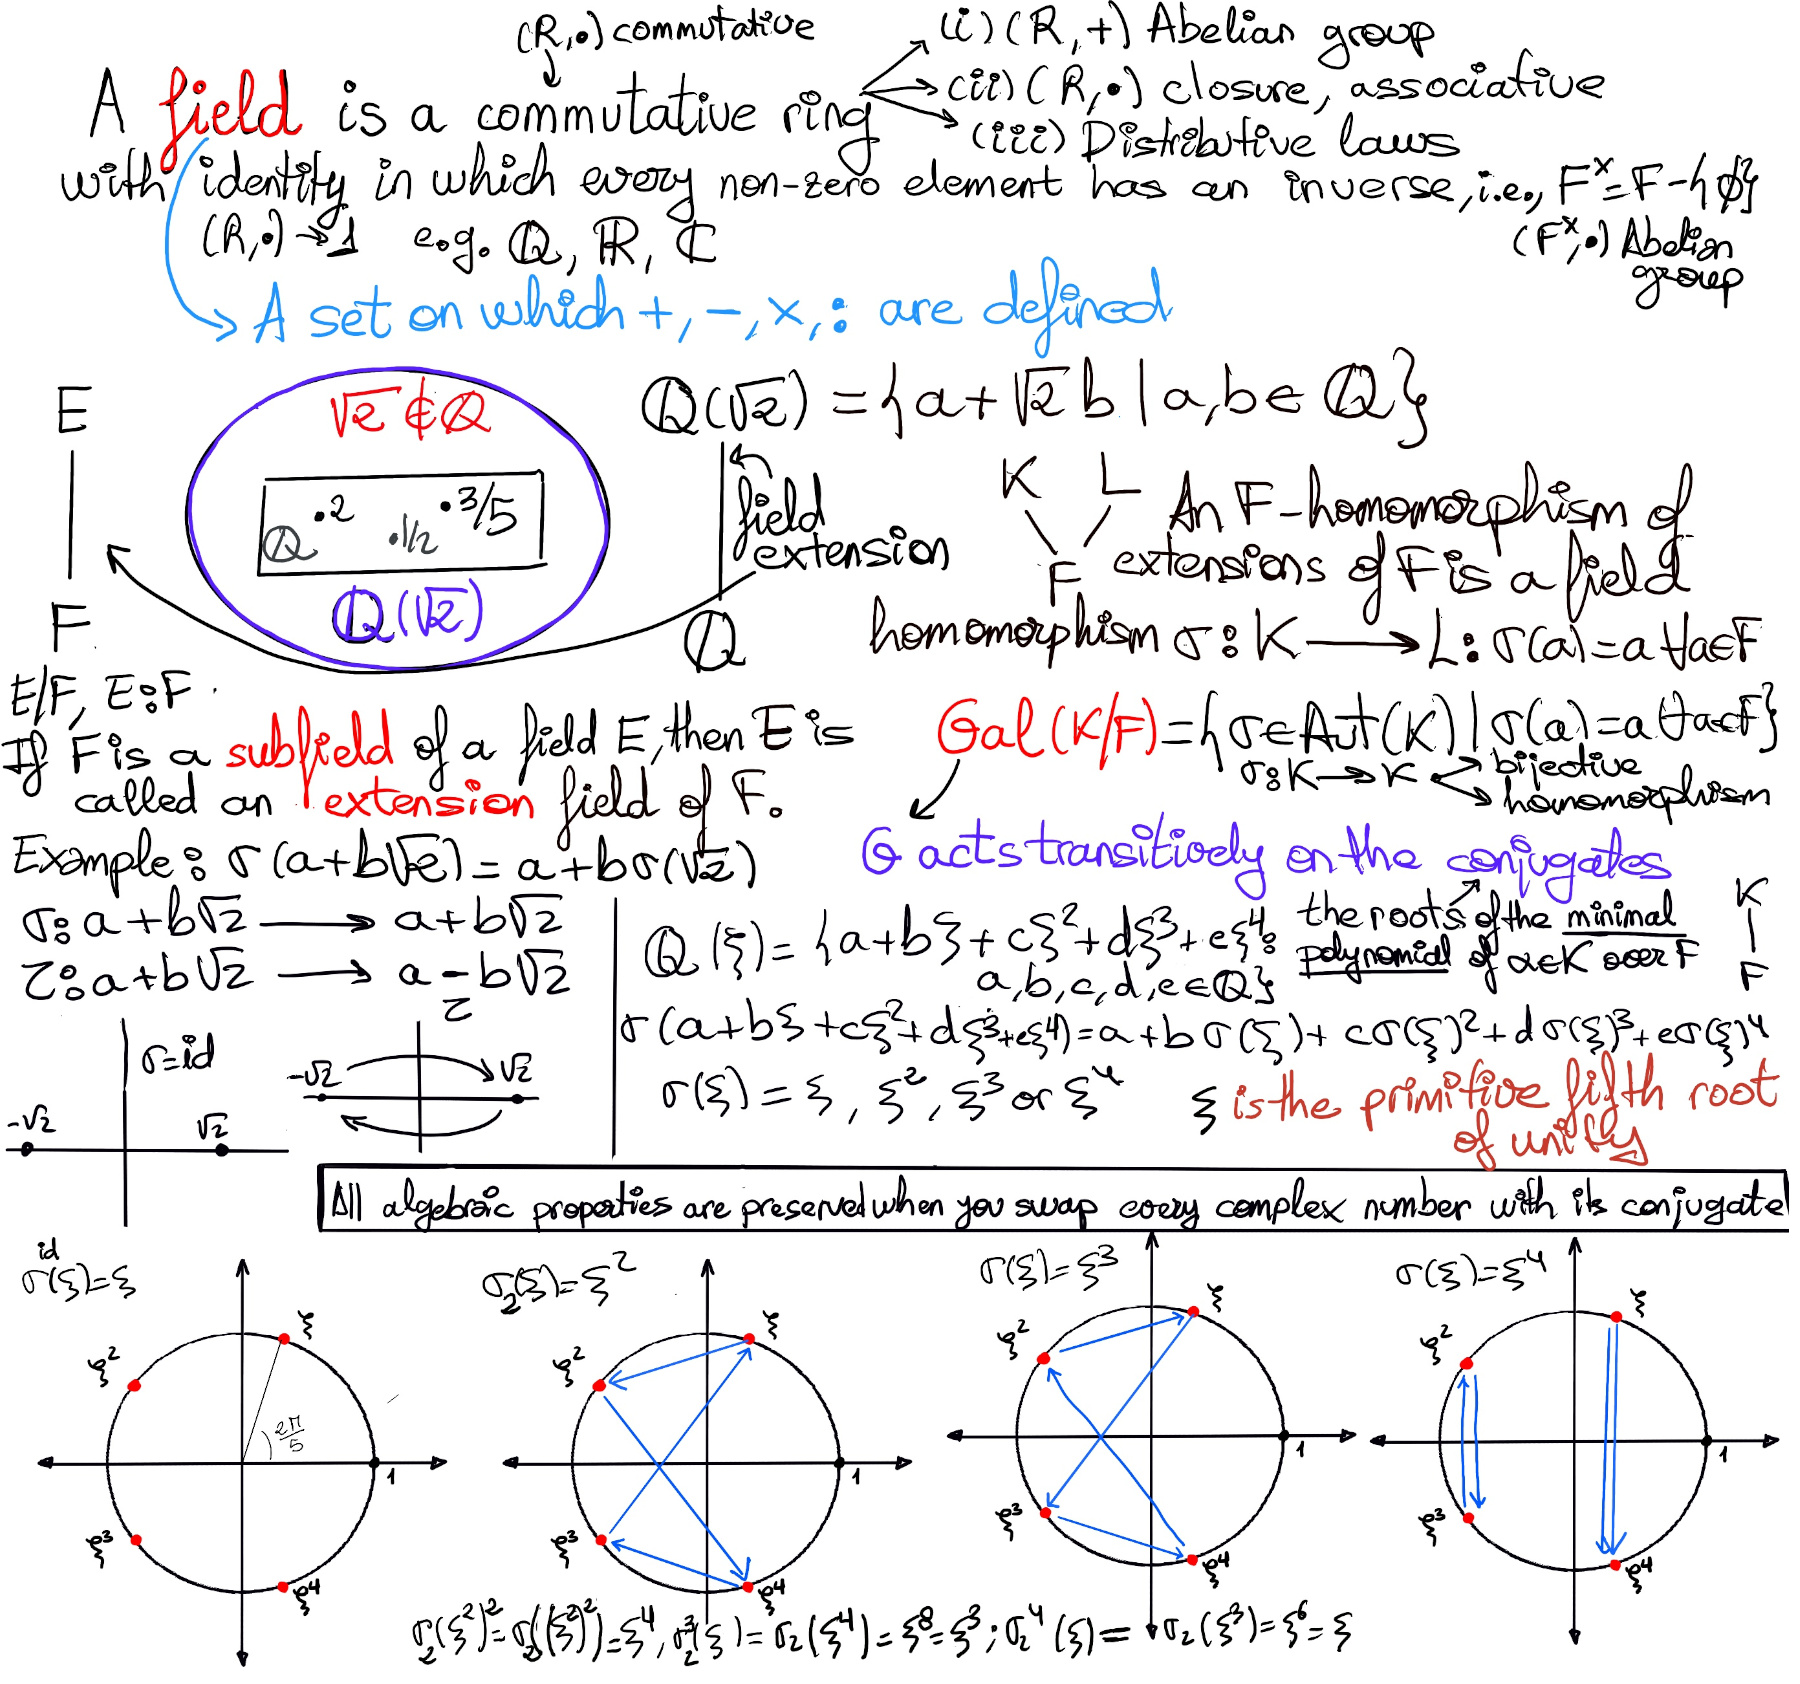 (R,•) commutative
A field is a commutative ring
(i) (R, +) Abelian group
(ii) (R,•) closure, associative
(iii) Distributive laws
with identity in which every non-zero element has an inverse, i.e., F^x = F - {∅}
(R,•) → 1 e.g. ℚ, ℝ, ℂ
(F^x,•) Abelian
group
A set on which +, -, x, : are defined
E
F
√2 ∉ ℚ
ℚ •2 •1/2 •3/5
ℚ(√2)
ℚ(√2) = {a + √2 b | a,b ∈ ℚ}
field
extension
ℚ
K L
F
An F-homomorphism of
extensions of F is a field
homomorphism σ: K → L: σ(a)=a ∀a∈F
E/F, E:F
If F is a subfield of a field E, then E is
called an extension field of F.
Gal(K/F) = {σ∈Aut(K) | σ(a)=a ∀a∈F}
σ: K → K bijective
homomorphism
G acts transitively on the conjugates
the roots of the minimal
polynomial of α∈K over F
K
F
Example: σ(a+b√2) = a+bσ(√2)
σ: a+b√2 → a+b√2
τ: a+b√2 → a-b√2
σ=id
-√2 √2
τ
-√2 √2
ℚ(ξ) = {a+bξ+cξ²+dξ³+eξ⁴:
a,b,c,d,e∈ℚ}
σ(a+bξ+cξ²+dξ³+eξ⁴)=a+bσ(ξ)+cσ(ξ)²+dσ(ξ)³+eσ(ξ)⁴
σ(ξ) = ξ, ξ², ξ³ or ξ⁴
ξ is the primitive fifth root
of unity
All algebraic properties are preserved when you swap every complex number with its conjugate
id
σ(ξ)=ξ
ξ
ξ²
2π/5
1
ξ³
ξ⁴
σ₂(ξ)=ξ²
ξ
ξ²
1
ξ³
ξ⁴
σ(ξ)=ξ³
ξ
ξ²
1
ξ³
ξ⁴
σ(ξ)=ξ⁴
ξ
ξ²
1
ξ³
ξ⁴
σ₂(ξ²)²=σ₂((ξ²)²)=ξ⁴, σ₂³(ξ)=σ₂(ξ⁴)=ξ⁸=ξ³; σ₂⁴(ξ)=σ₂(ξ³)=ξ⁶=ξ